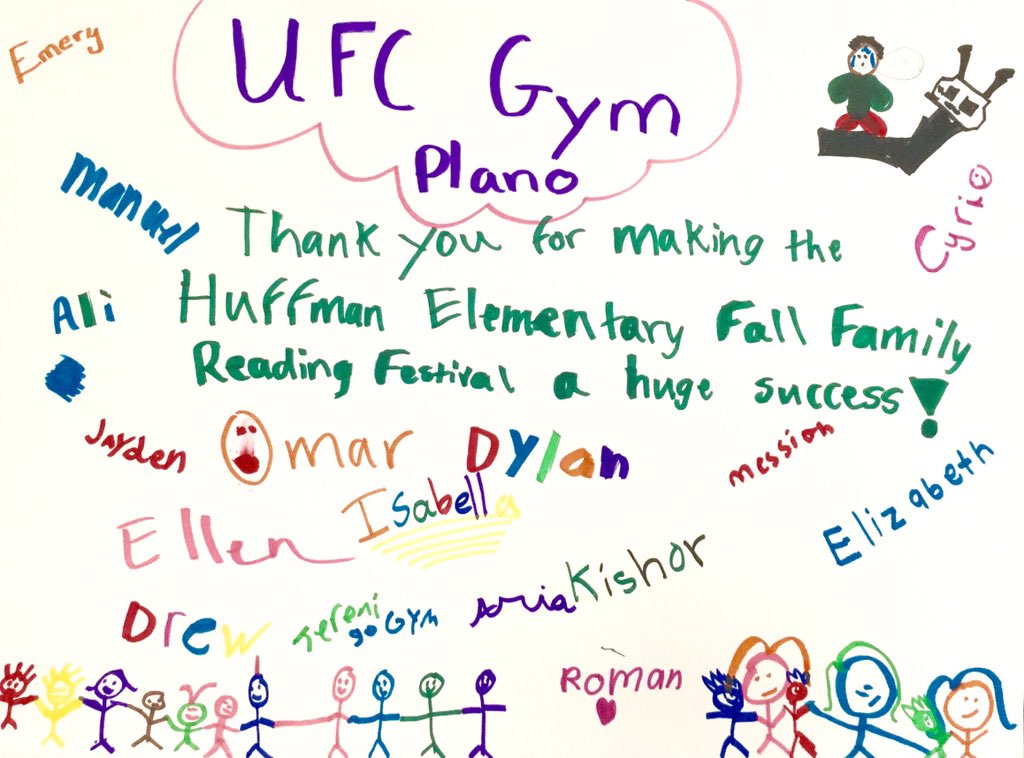 Emery
UFC Gym
Plano
Manuel
Cyrio
Thank you for making the
Ali
Huffman Elementary Fall Family
Reading Festival a huge success!
Jayden
Omar
Dylan
messiah
Isabella
Elizabeth
Ellen
Kishor
Drew
Jeremi
go GYM
Aria
Roman